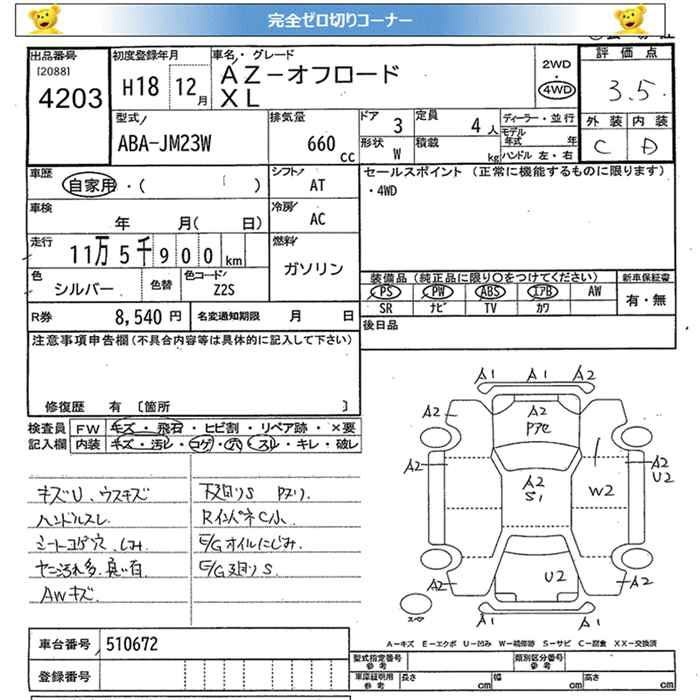 完全ゼロ切りコーナー
出品番号
[2088]
4203
初度登録年月
H18 12月
車名・グレード
AZ-オフロード
XL
2WD
4WD
評価点
3.5
外装 内装
C D
型式
ABA-JM23W
排気量
660 cc
ドア 3
形状 W
定員 4人
積載 kg
ディーラー・並行
モデル年式 年
ハンドル 左・右
車歴
自家用・( )
シフト
AT
セールスポイント (正常に機能するものに限ります)
・4WD
車検
年 月( 日)
冷房
AC
走行
11万5千900km
燃料
ガソリン
色
シルバー
色替
色コード
Z2S
装備品 (純正品に限り〇をつけてください)
PS PW ABS エアB AW
SR ナビ TV カワ
新車保証書
有・無
R券 8,540円
名変通知期限 月 日
後日品
注意事項申告欄(不具合内容等は具体的に記入して下さい)
修復歴 有 [箇所 ]
検査員 FW キズ・飛石・ヒビ割・リペア跡・×要
記入欄 内装 キズ・汚レ・コゲ・穴・スレ・キレ・破レ
キズU、ウスキズ
ハンドルスレ
シートコゲ穴 しみ
ヤニ汚れ多
AWキズ
下廻りS
RインパネC小
E/Gオイルにじみ
E/G廻りS
A1 A1 A2
A2 A2 Pアセ
A2 A2 S1 W2 A2 U2
U2
A2 A2
A1 A1
スペア
A-キズ E-エクボ U-凹み W-補修跡 S-サビ C-腐食 XX-交換済
車台番号 510672
登録番号
型式指定番号 参考
類別区分番号 参考
車庫証明用 参考 長さ cm 幅 cm 高さ cm